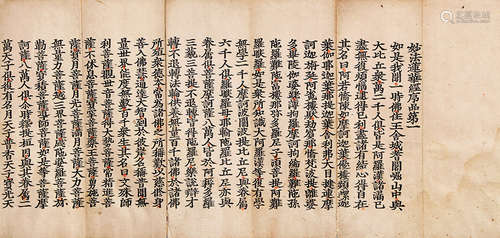 妙法蓮華經序品第一
如是我聞一時佛住王舍城耆闍崛山中與
大比丘衆萬二千人俱皆是阿羅漢諸漏已
盡無復煩惱逮得己利盡諸有結心得自在
其名曰阿若憍陳如摩訶迦葉優樓頻螺迦
葉伽耶迦葉那提迦葉舍利弗大目揵連摩
訶迦旃延阿㝹樓馱劫賓那憍梵波提離婆
多畢陵伽婆蹉薄拘羅摩訶拘絺羅難陀孫
陀羅難陀富樓那彌多羅尼子須菩提阿難
羅睺羅如是衆所知識大阿羅漢等復有學
無學二千人摩訶波闍波提比丘尼與眷屬
六千人俱羅睺羅母耶輸陀羅比丘尼亦與
眷屬俱菩薩摩訶薩八萬人皆於阿耨多羅
三藐三菩提不退轉皆得陀羅尼樂說辯才
轉不退轉法輪供養無量百千諸佛於諸佛
所殖衆德本常為諸佛之所稱歎以慈修身
善入佛慧通達大智到於彼岸名稱普聞無
量世界能度無數百千衆生其名曰文殊師
利菩薩觀世音菩薩得大勢菩薩常精進菩
薩不休息菩薩寶掌菩薩藥王菩薩勇施菩
薩寶月菩薩月光菩薩滿月菩薩大力菩薩
無量力菩薩越三界菩薩跋陀婆羅菩薩彌
勒菩薩寶積菩薩導師菩薩如是等菩薩摩
訶薩八萬人俱爾時釋提桓因與其眷屬二
萬天子俱復有名月天子普香天子寶光天